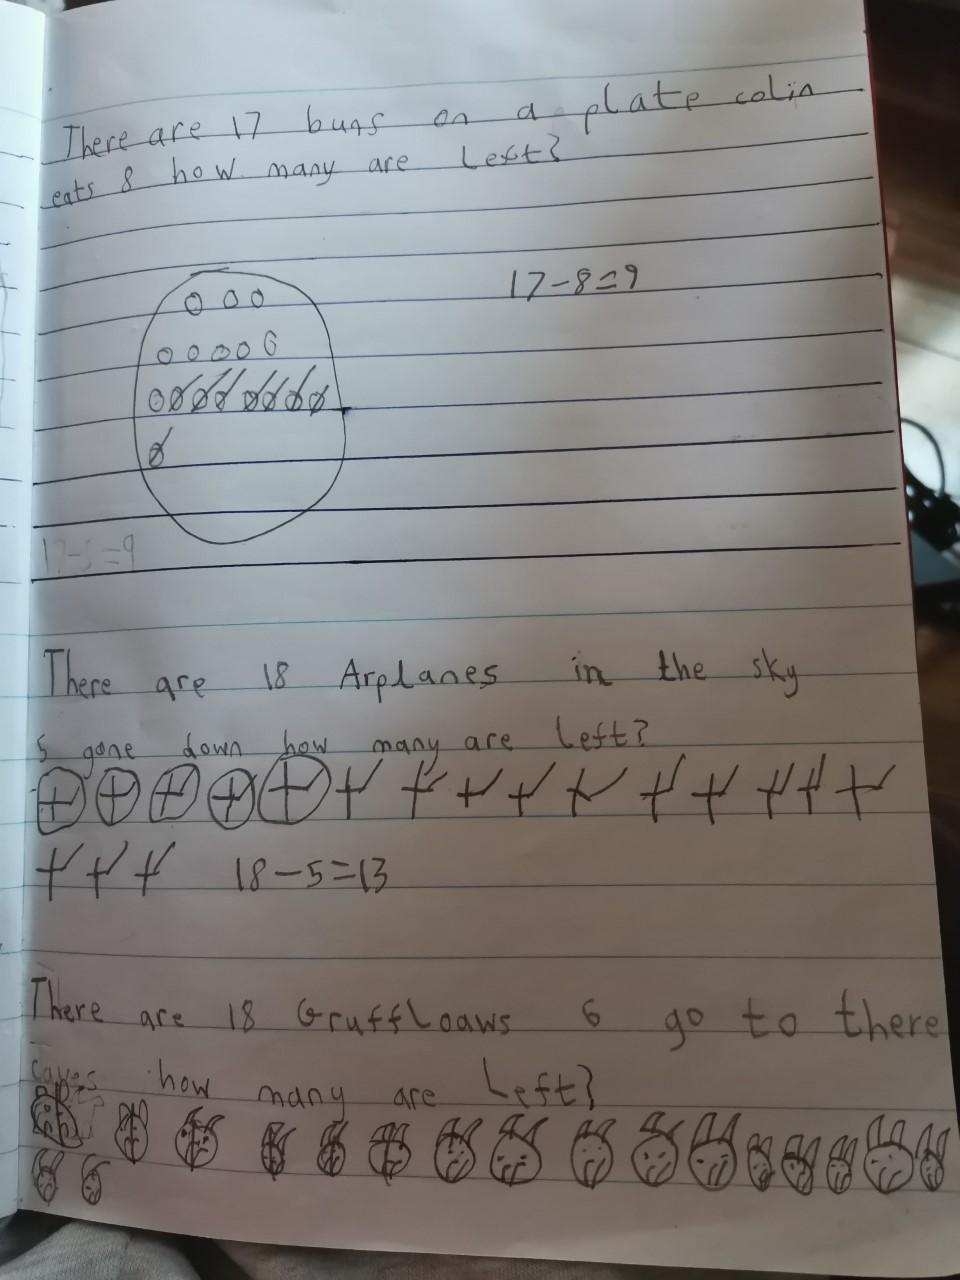 There are 17 buns on a plate colin
eats 8 how many are left?
17-8=9
17-5=9
There are 18 Arplanes in the sky
5 gone down how many are left?
18-5=13
There are 18 Gruffloaws 6 go to there
caves how many are left?